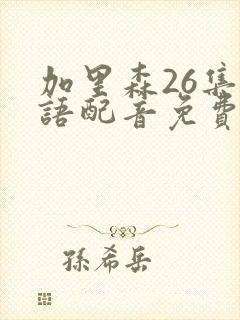 加里森26集
語配音免費
孫希岳